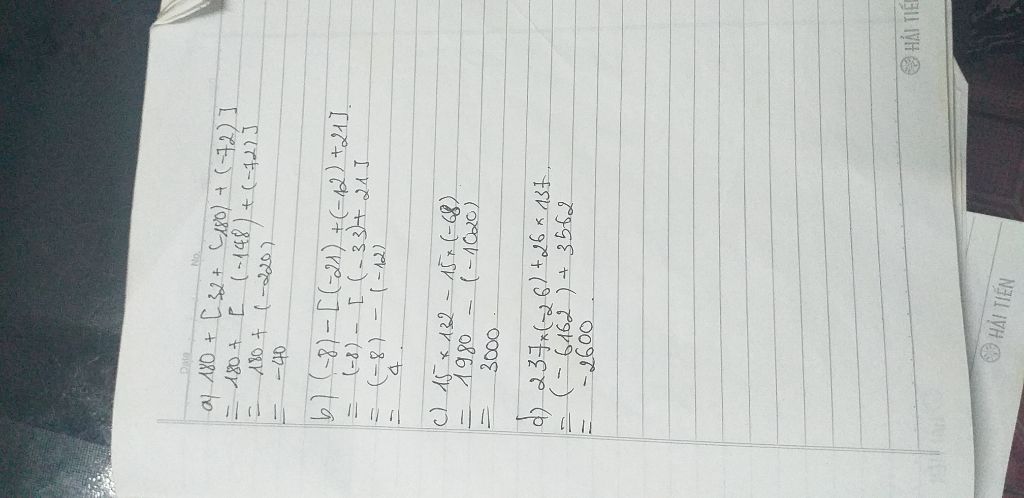 Date
No.
a) 180 + [32 + (180) + (-72)]
= 180 + [ (-148) + (-72)]
= 180 + (-220)
= -40
b) (-8) - [(-21) + (-12) + 21].
= (-8) - [ (-33) + 21]
= (-8) - (-12)
= 4.
c) 15 x 132 - 15 x (-68)
= 1980 - (-1020)
= 3000
d) 237 x (-26) + 26 x 137.
= (-6162) + 3562
= -2600.
HẢI TIẾN
HẢI TIẾN